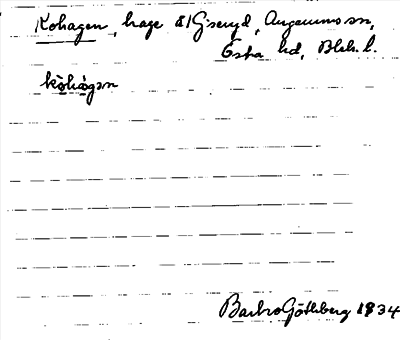 Kohagen, hage å G:seryd, Angeums sn,
Östra hd, Blek. l.
kọ̀hạ̀gən
Barbro Götlberg 1934